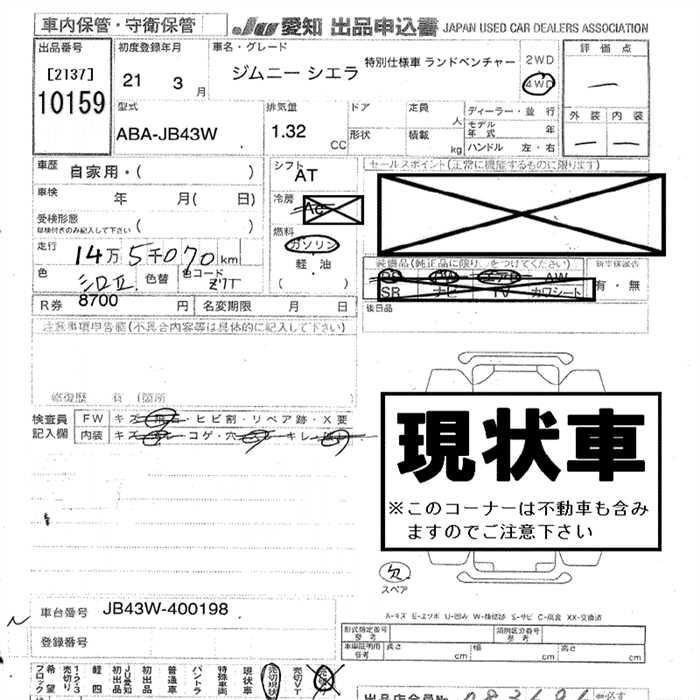 車内保管・守衛保管
JU愛知 出品申込書 JAPAN USED CAR DEALERS ASSOCIATION
出品番号
[2137]
10159
初度登録年月
21 3月
車名・グレード
ジムニー シエラ
特別仕様車 ランドベンチャー
2WD
4WD
評価点
外装 内装
型式
ABA-JB43W
排気量
1.32
CC
ドア
形状
定員
人
積載
kg
ディーラー・並行
モデル年式 年
ハンドル 左・右
車歴
自家用・( )
車検
年 月( 日)
受検形態
車検付きのみ記入して下さい
( )
走行
14万5千070km
色
色替
色コード
Z7T
シフト
AT
冷房
AC
燃料
ガソリン
軽・油
( )
セールスポイント(正常に機能するものに限ります)
装備品(純正品に限り○をつけてください)
PS PW エアB AW
SR ナビ TV カワシート
新車保証書
有・無
後日品
R券 8700 円
名変期限 月 日
注意事項申告欄(不具合内容等は具体的に記入して下さい)
修復歴 有(箇所
検査員記入欄
FW キズ・飛石・ヒビ割・リペア跡・X要
内装 キズ・コゲ・穴・キレ
現状車
※このコーナーは不動車も含み
ますのでご注意下さい
欠
スペア
A-キズ E-エクボ U-凹み W-補修跡 S-サビ C-腐食 XX-交換済
車台番号 JB43W-400198
登録番号
形式指定番号
参考
類別区分番号
参考
車庫証明用
参考
長さ cm
幅 cm
高さ cm
希望ブロック
1・2・3売切り
軽四
JU愛知初出品
初出品
普通車
バントラ
特殊車両
現状車
売切現状
売切VT
出品店会員名